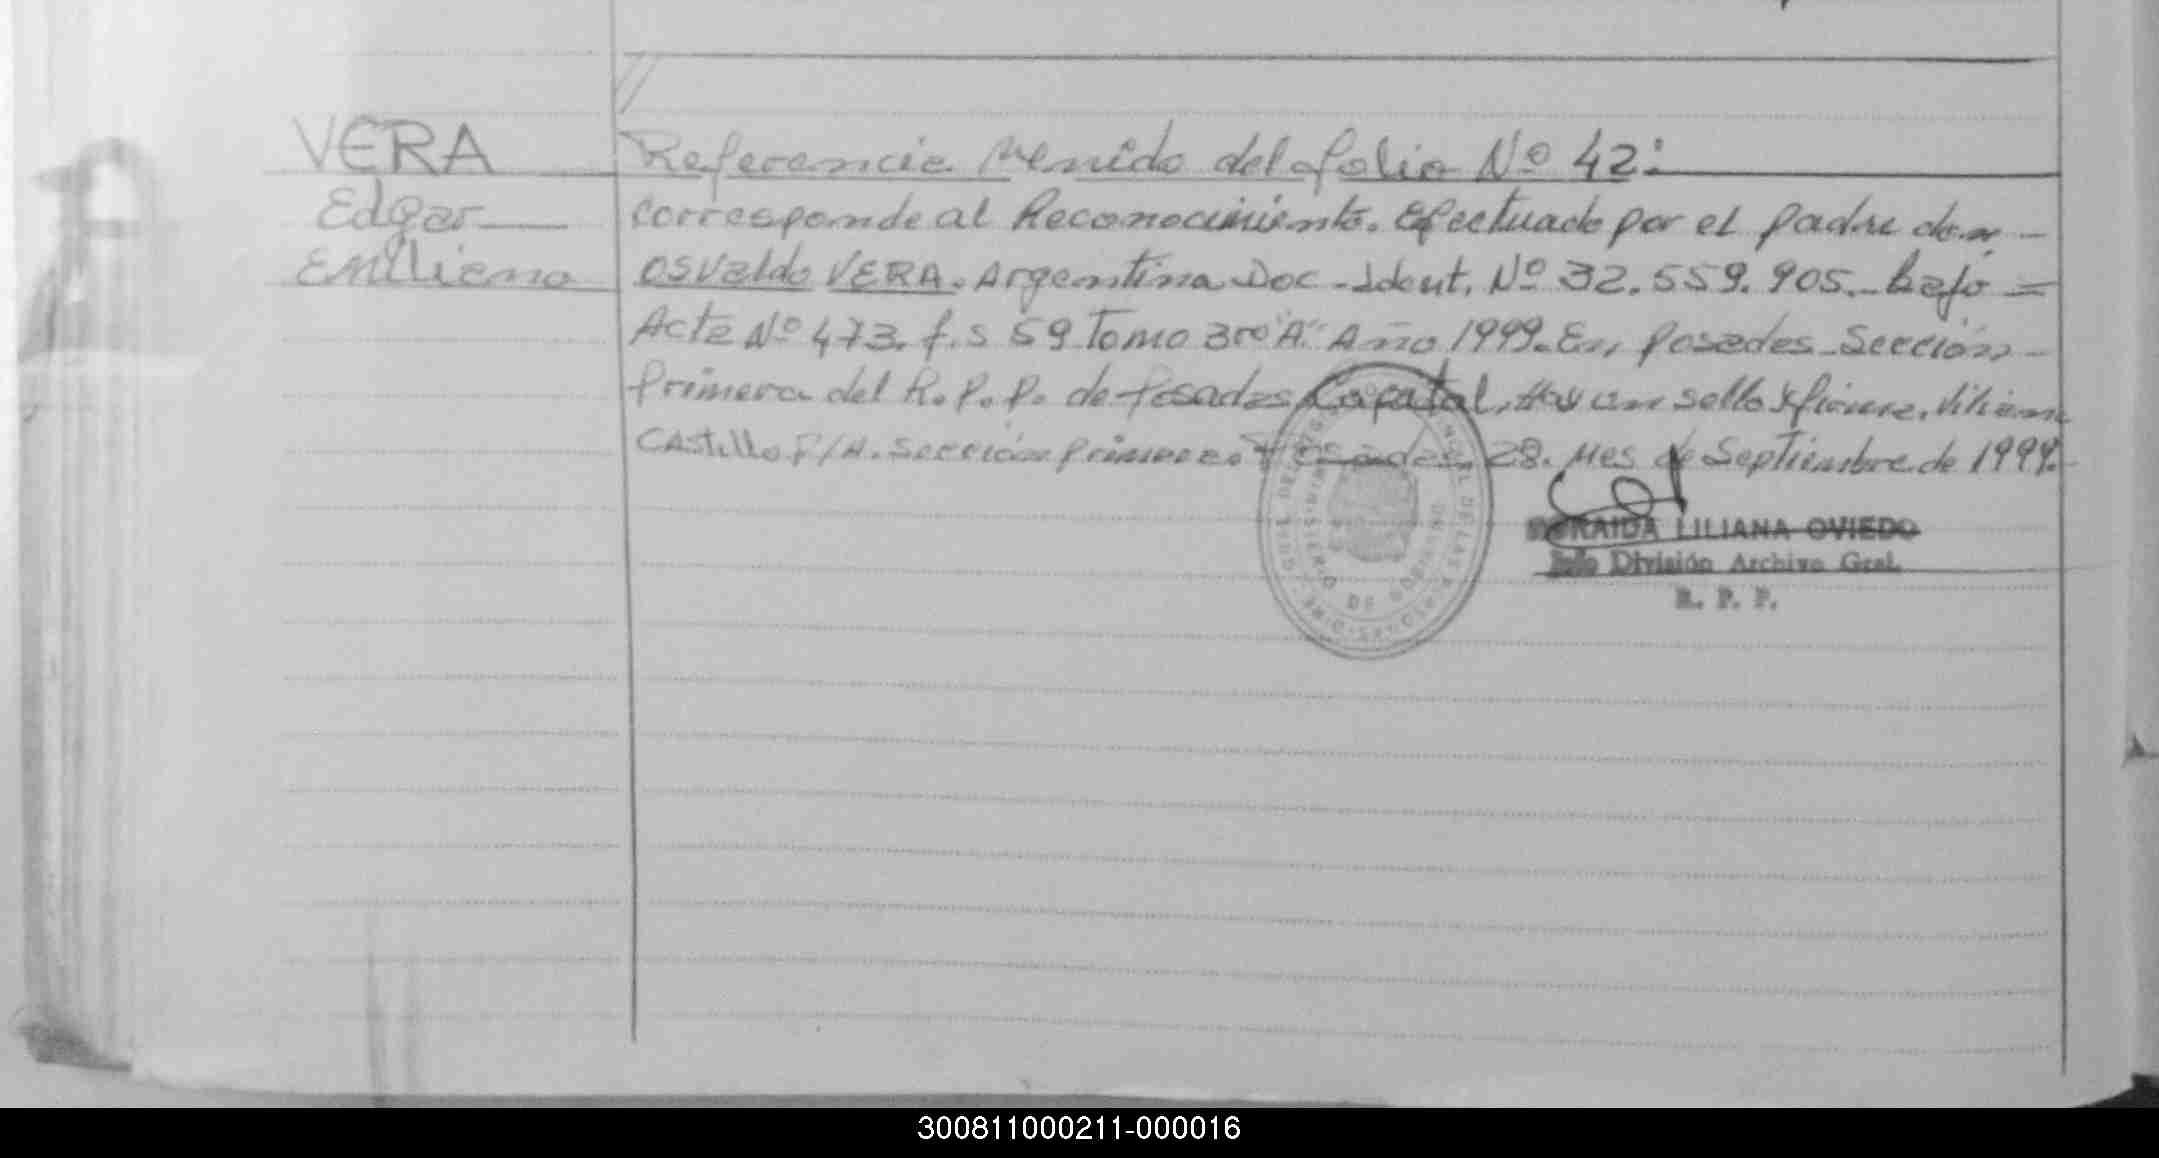 VERA
Edgar
Emiliano
Referencia Venido del folio Nº 42:
corresponde al Reconocimiento. Efectuado por el padre don
OSValdo VERA. Argentina Doc. Ident. Nº 32.559.905. bajo =
Acta Nº 473. f.s 59 Tomo 3ro "A" Año 1999. En, posadas Sección
primera del R.P.P. de Posadas Capital, Hay un sello y firma.
CAstillo F/A. Sección primera Posadas 28. Mes de Septiembre de 1999.
LILIANA OVIEDO
División Archivo Gral.
R. P. P.
MINISTERIO DE GOBIERNO
300811000211-000016